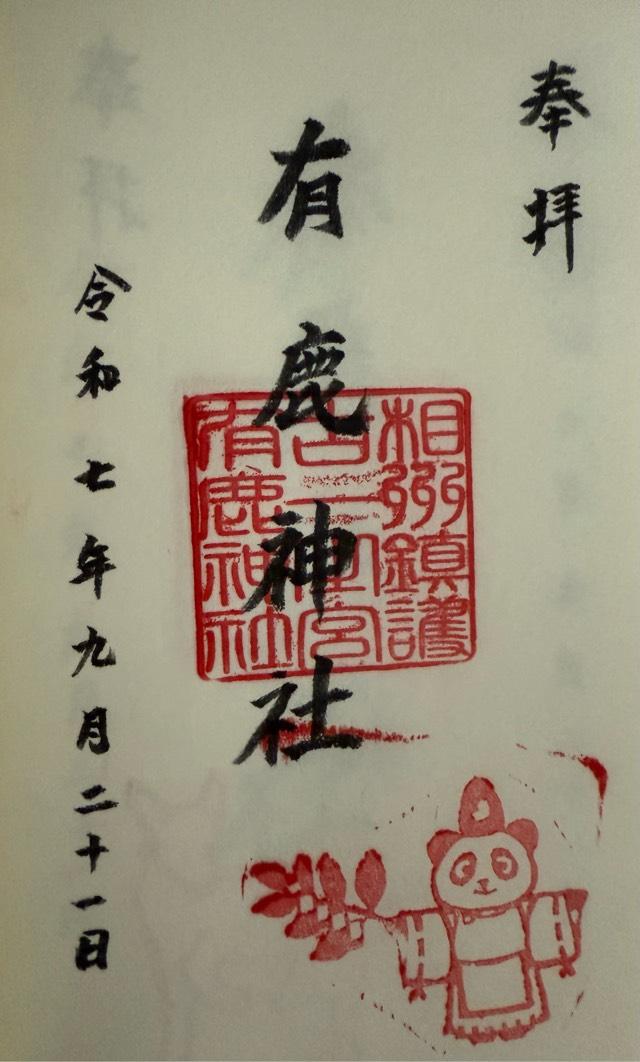 奉拝
有鹿神社
相州鎮護
有鹿神社
令和七年九月二十一日